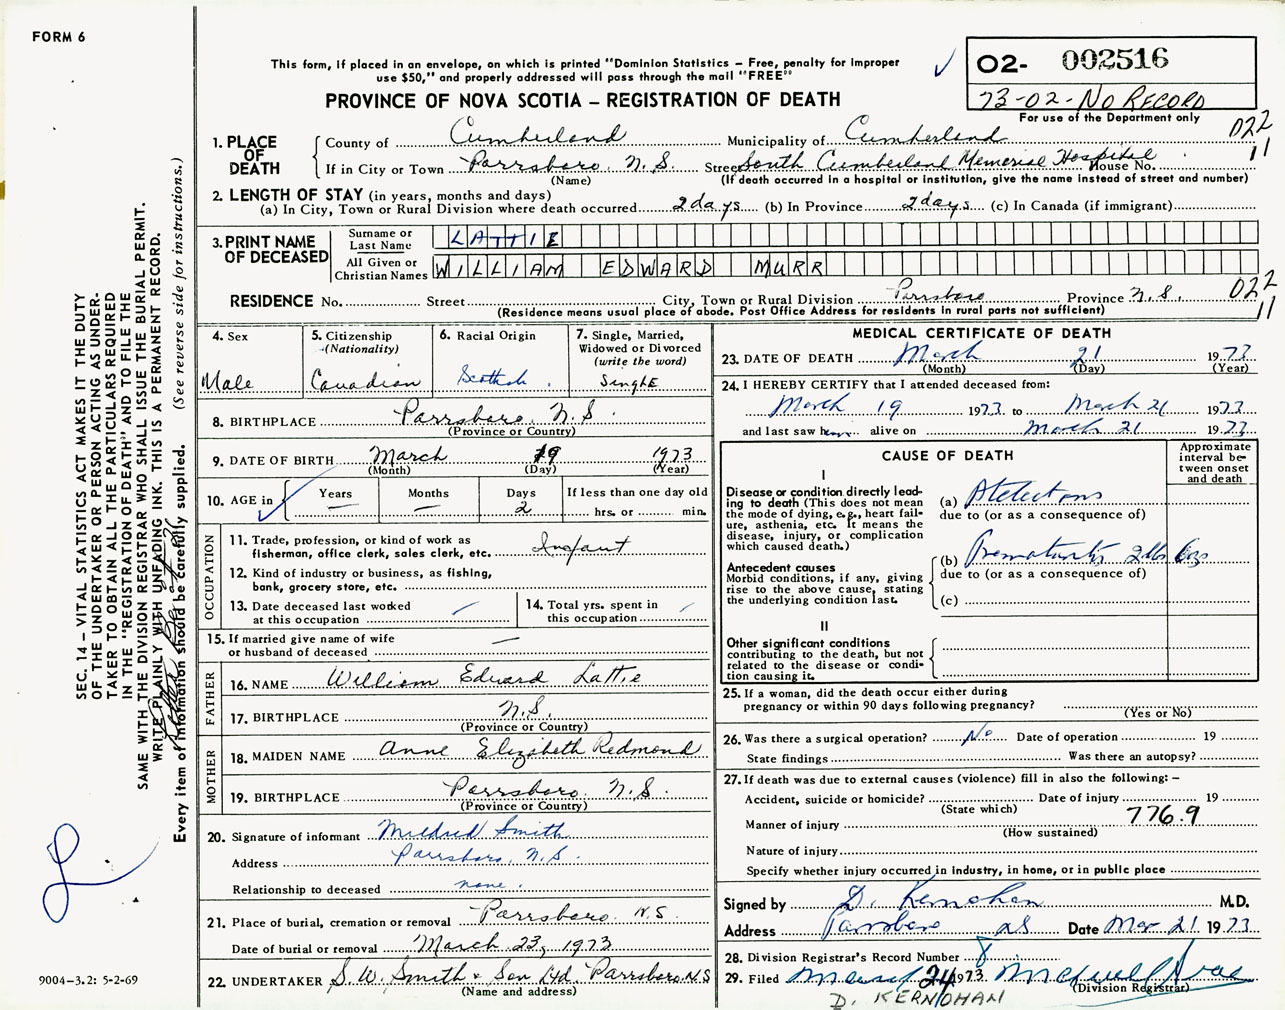 FORM 6
This form, if placed in an envelope, on which is printed "Dominion Statistics – Free, penalty for improper
use $50," and properly addressed will pass through the mail "FREE"
PROVINCE OF NOVA SCOTIA – REGISTRATION OF DEATH
02- 002516
73-02-NO RECORD
For use of the Department only
022
11
1. PLACE OF DEATH
County of Cumberland Municipality of Cumberland
If in City or Town Parrsboro, N.S. Street South Cumberland Memorial Hospital House No.
(Name) (If death occurred in a hospital or institution, give the name instead of street and number)
2. LENGTH OF STAY (in years, months and days)
(a) In City, Town or Rural Division where death occurred 2 days (b) In Province 2 days (c) In Canada (if immigrant)
3. PRINT NAME OF DECEASED
Surname or Last Name LATTIE
All Given or Christian Names WILLIAM EDWARD MURR
RESIDENCE No. Street City, Town or Rural Division Parrsboro Province N.S.
022
11
(Residence means usual place of abode. Post Office Address for residents in rural parts not sufficient)
4. Sex
Male
5. Citizenship
(Nationality)
Canadian
6. Racial Origin
Scotch
7. Single, Married,
Widowed or Divorced
(write the word)
SinglE
8. BIRTHPLACE Parrsboro N.S.
(Province or Country)
9. DATE OF BIRTH March 19 1973
(Month) (Day) (Year)
10. AGE in
Years – Months – Days 2
If less than one day old
hrs. or min.
OCCUPATION
11. Trade, profession, or kind of work as
fisherman, office clerk, sales clerk, etc. Infant
12. Kind of industry or business, as fishing,
bank, grocery store, etc.
13. Date deceased last worked
at this occupation
14. Total yrs. spent in
this occupation
15. If married give name of wife
or husband of deceased –
FATHER
16. NAME William Edward Lattie
17. BIRTHPLACE N.S.
(Province or Country)
MOTHER
18. MAIDEN NAME Anne Elizabeth Redmond
19. BIRTHPLACE Parrsboro N.S.
(Province or Country)
20. Signature of informant Mildred Smith
Address Parrsboro, N.S.
Relationship to deceased none.
21. Place of burial, cremation or removal Parrsboro N.S.
Date of burial or removal March 23, 1973
22. UNDERTAKER S.W. Smith & Son Ltd. Parrsboro N.S
(Name and address)
MEDICAL CERTIFICATE OF DEATH
23. DATE OF DEATH March 21 1973
(Month) (Day) (Year)
24. I HEREBY CERTIFY that I attended deceased from:
March 19 1973 to March 21 1973
and last saw alive on March 21 1973
CAUSE OF DEATH
Approximate
interval be-
tween onset
and death
I
Disease or condition directly lead-
ing to death (This does not mean
the mode of dying, e.g., heart fail-
ure, asthenia, etc. It means the
disease, injury, or complication
which caused death.)
(a)
due to (or as a consequence of)
Antecedent causes
Morbid conditions, if any, giving
rise to the above cause, stating
the underlying condition last.
(b) Prematurity 2 lbs
due to (or as a consequence of)
(c)
II
Other significant conditions
contributing to the death, but not
related to the disease or condi-
tion causing it.
25. If a woman, did the death occur either during
pregnancy or within 90 days following pregnancy?
(Yes or No)
26. Was there a surgical operation? No Date of operation 19
State findings Was there an autopsy?
27. If death was due to external causes (violence) fill in also the following: –
Accident, suicide or homicide? Date of injury 19
(State which)
776.9
Manner of injury
(How sustained)
Nature of injury
Specify whether injury occurred in industry, in home, or in public place
Signed by D. Kernohan M.D.
Address Parrsboro NS Date Mar 21 1973
28. Division Registrar's Record Number 8
29. Filed March 24 1973.
(Division Registrar)
D. KERNOHAN
SEC. 14 – VITAL STATISTICS ACT MAKES IT THE DUTY
OF THE UNDERTAKER OR PERSON ACTING AS UNDER-
TAKER TO OBTAIN ALL THE PARTICULARS REQUIRED
IN THE "REGISTRATION OF DEATH" AND TO FILE THE
SAME WITH THE DIVISION REGISTRAR WHO SHALL ISSUE THE BURIAL PERMIT.
WRITE PLAINLY WITH UNFADING INK. THIS IS A PERMANENT RECORD.
Every item of information should be carefully supplied. (See reverse side for instructions.)
9004-3.2: 5-2-69